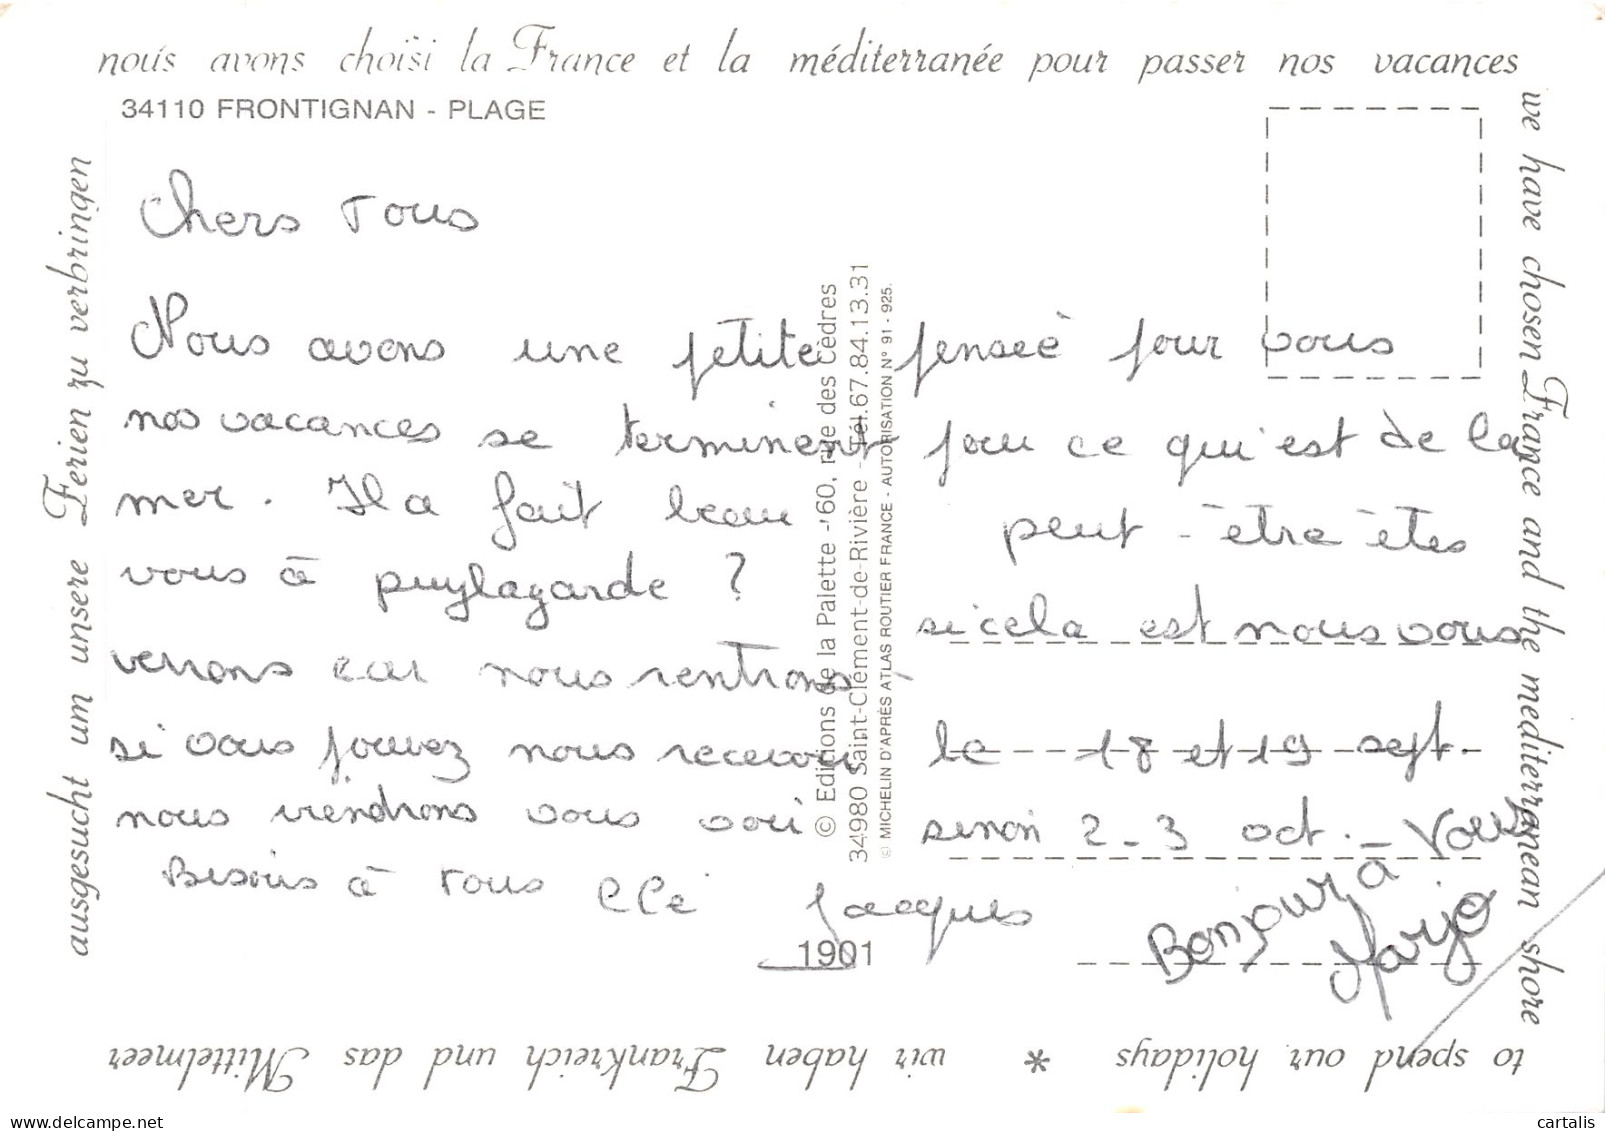 nous avons choïsi la France et la méditerranée pour passer nos vacances
34110 FRONTIGNAN - PLAGE
Chers Tous
Nous avons une petite pensée pour vous
nos vacances se terminent pour ce qui est de la
mer. Il a fait beau peut-être êtes
vous à puylagarde ? si cela est nous vous
verrons car nous rentrons
si vous pouvez nous recevoir le 18 et 19 sept.
nous viendrons vous voir sinon 2-3 oct.
Bisous à Tous Jacques
Bonjour à Vous
Marjo
© Editions de la Palette - 60, rue des Cèdres
34980 Saint-Clément-de-Rivière - Tél. 67.84.13.31
© MICHELIN D'APRÈS ATLAS ROUTIER FRANCE - AUTORISATION N° 91 - 925.
1901
we have chosen France and the mediterranean shore
to spend our holidays * wir haben Frankreich und das Mittelmeer
ausgesucht um unsere Ferien zu verbringen
cartalis